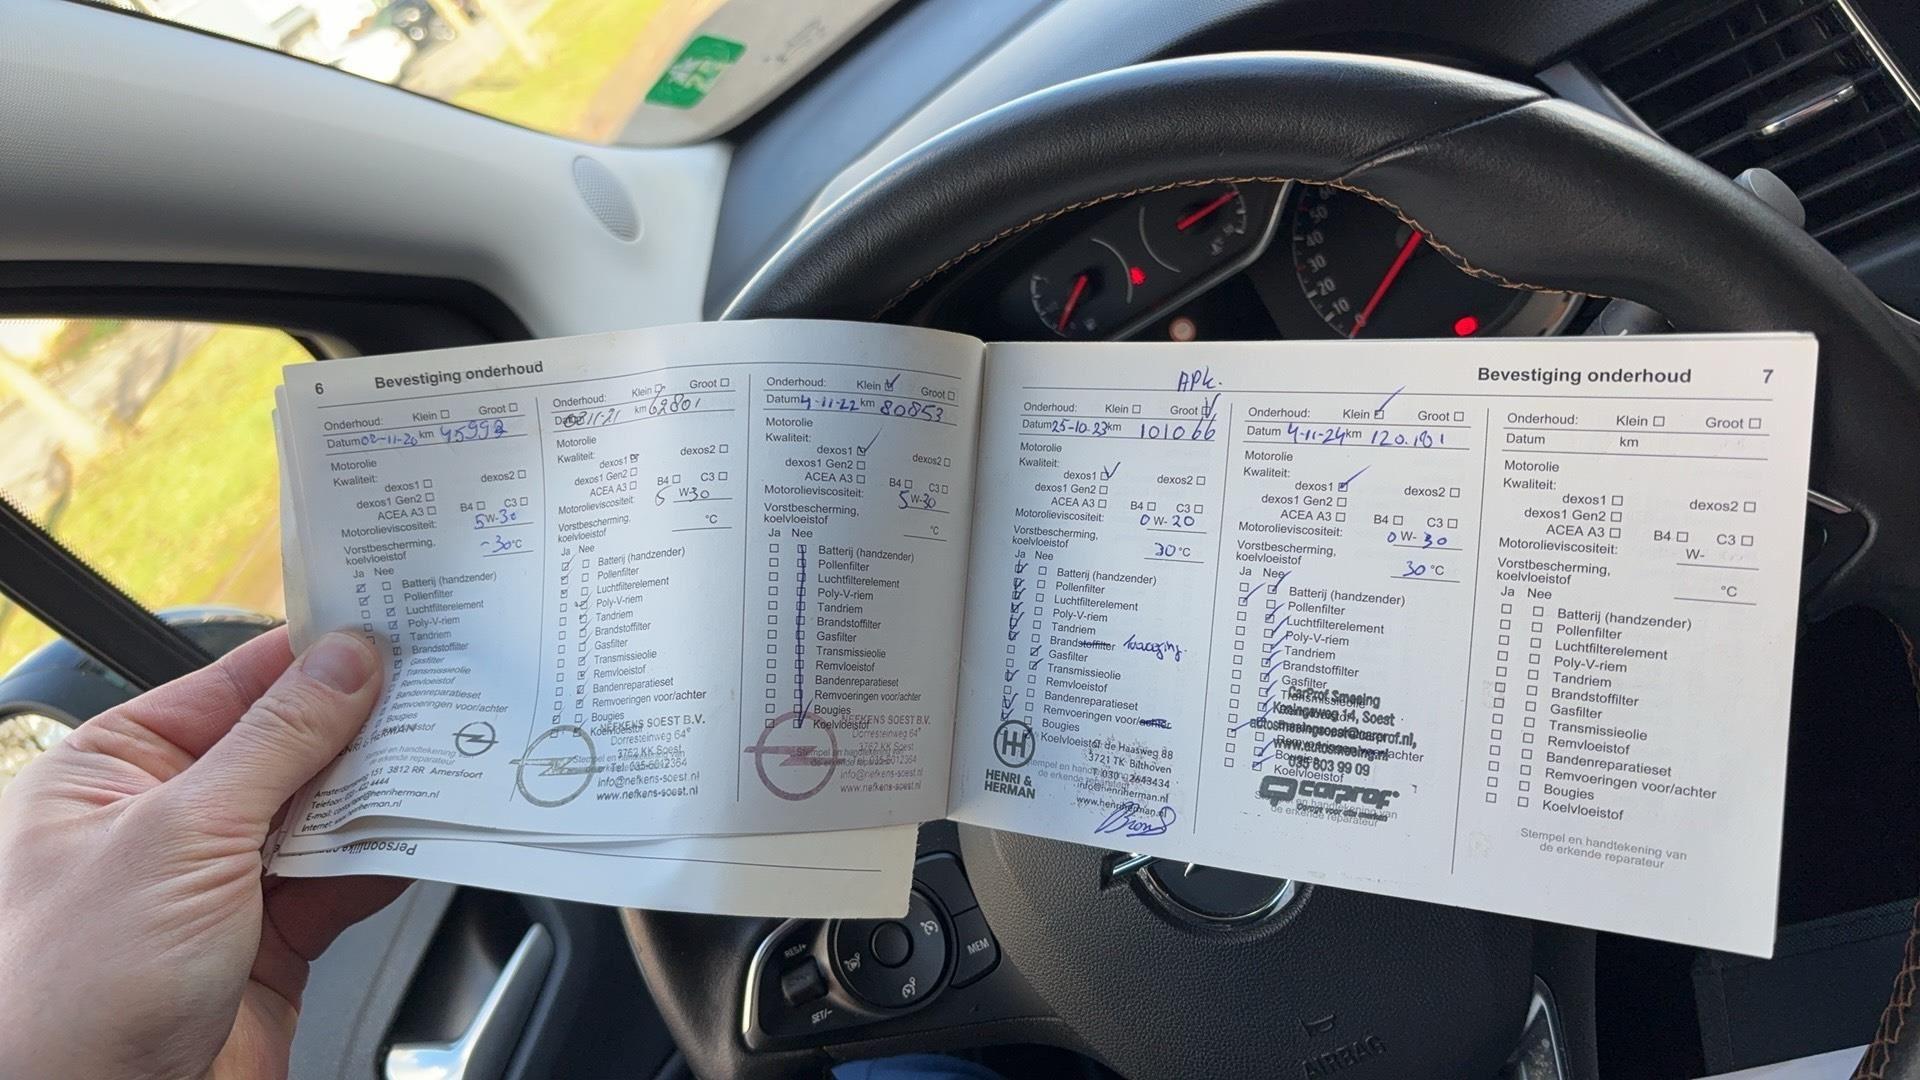 6 Bevestiging onderhoud
Onderhoud: Klein Groot
Datum 02-11-20 km 45993
Motorolie
Kwaliteit: dexos1 dexos2
dexos1 Gen2
ACEA A3 B4 C3
Motorolieviscositeit: 5W-30
Vorstbescherming, koelvloeistof -30°C
Ja Nee
Batterij (handzender)
Pollenfilter
Luchtfilterelement
Poly-V-riem
Tandriem
Brandstoffilter
Gasfilter
Transmissieolie
Remvloeistof
Bandenreparatieset
Remvoeringen voor/achter
Bougies
HENRI & HERMAN
Stempel en handtekening
de erkende reparateur
151 3812 RR Amersfoort
Onderhoud: Klein Groot
11-21 km 62801
Motorolie
Kwaliteit: dexos1 dexos2
dexos1 Gen2
ACEA A3 B4 C3
Motorolieviscositeit: 5 W-30
Vorstbescherming, koelvloeistof °C
Ja Nee
Batterij (handzender)
Pollenfilter
Luchtfilterelement
Poly-V-riem
Tandriem
Brandstoffilter
Gasfilter
Transmissieolie
Remvloeistof
Bandenreparatieset
Remvoeringen voor/achter
Bougies
Koelvloeistof
NEFKENS SOEST B.V.
Dorresteinweg 64
3762 KK Soest
Tel. 035-6012364
info@nefkens-soest.nl
www.nefkens-soest.nl
Onderhoud: Klein Groot
Datum 4-11-22 km 80853
Motorolie
Kwaliteit: dexos1 dexos2
dexos1 Gen2
ACEA A3 B4 C3
Motorolieviscositeit: 5W-30
Vorstbescherming, koelvloeistof °C
Ja Nee
Batterij (handzender)
Pollenfilter
Luchtfilterelement
Poly-V-riem
Tandriem
Brandstoffilter
Gasfilter
Transmissieolie
Remvloeistof
Bandenreparatieset
Remvoeringen voor/achter
Bougies
Koelvloeistof
NEFKENS SOEST B.V.
Dorresteinweg 64
3762 KK Soest
Tel. 035-6012364
info@nefkens-soest.nl
www.nefkens-soest.nl
Persoonlijke
APK.
Bevestiging onderhoud 7
Onderhoud: Klein Groot
Datum 25-10-23 km 101066
Motorolie
Kwaliteit: dexos1 dexos2
dexos1 Gen2
ACEA A3 B4 C3
Motorolieviscositeit: 0 W-20
Vorstbescherming, koelvloeistof 30°C
Ja Nee
Batterij (handzender)
Pollenfilter
Luchtfilterelement
Poly-V-riem
Tandriem
Brandstoffilter
Gasfilter
Transmissieolie
Remvloeistof
Bandenreparatieset
Remvoeringen voor/achter
Bougies
Koelvloeistof
HENRI & HERMAN
de Haasweg 88
3721 TK Bilthoven
T 030 - 2643434
info@henriherman.nl
www.henriherman.nl
Onderhoud: Klein Groot
Datum 4-11-24 km 120.181
Motorolie
Kwaliteit: dexos1 dexos2
dexos1 Gen2
ACEA A3 B4 C3
Motorolieviscositeit: 0 W-30
Vorstbescherming, koelvloeistof 30°C
Ja Nee
Batterij (handzender)
Pollenfilter
Luchtfilterelement
Poly-V-riem
Tandriem
Brandstoffilter
Gasfilter
CarProf Smeeing
Koningsweg 14, Soest
autosmeeingsoest@carprof.nl,
www.autosmeeing.nl
035 603 99 09
Koelvloeistof
carprof
Garage voor alle merken
de erkende reparateur
Onderhoud: Klein Groot
Datum km
Motorolie
Kwaliteit:
dexos1 dexos2
dexos1 Gen2
ACEA A3 B4 C3
Motorolieviscositeit: W-
Vorstbescherming,
koelvloeistof °C
Ja Nee
Batterij (handzender)
Pollenfilter
Luchtfilterelement
Poly-V-riem
Tandriem
Brandstoffilter
Gasfilter
Transmissieolie
Remvloeistof
Bandenreparatieset
Remvoeringen voor/achter
Bougies
Koelvloeistof
Stempel en handtekening van
de erkende reparateur
50
40
30
20
10
0
RES/+
SET/-
MEM
AIRBAG